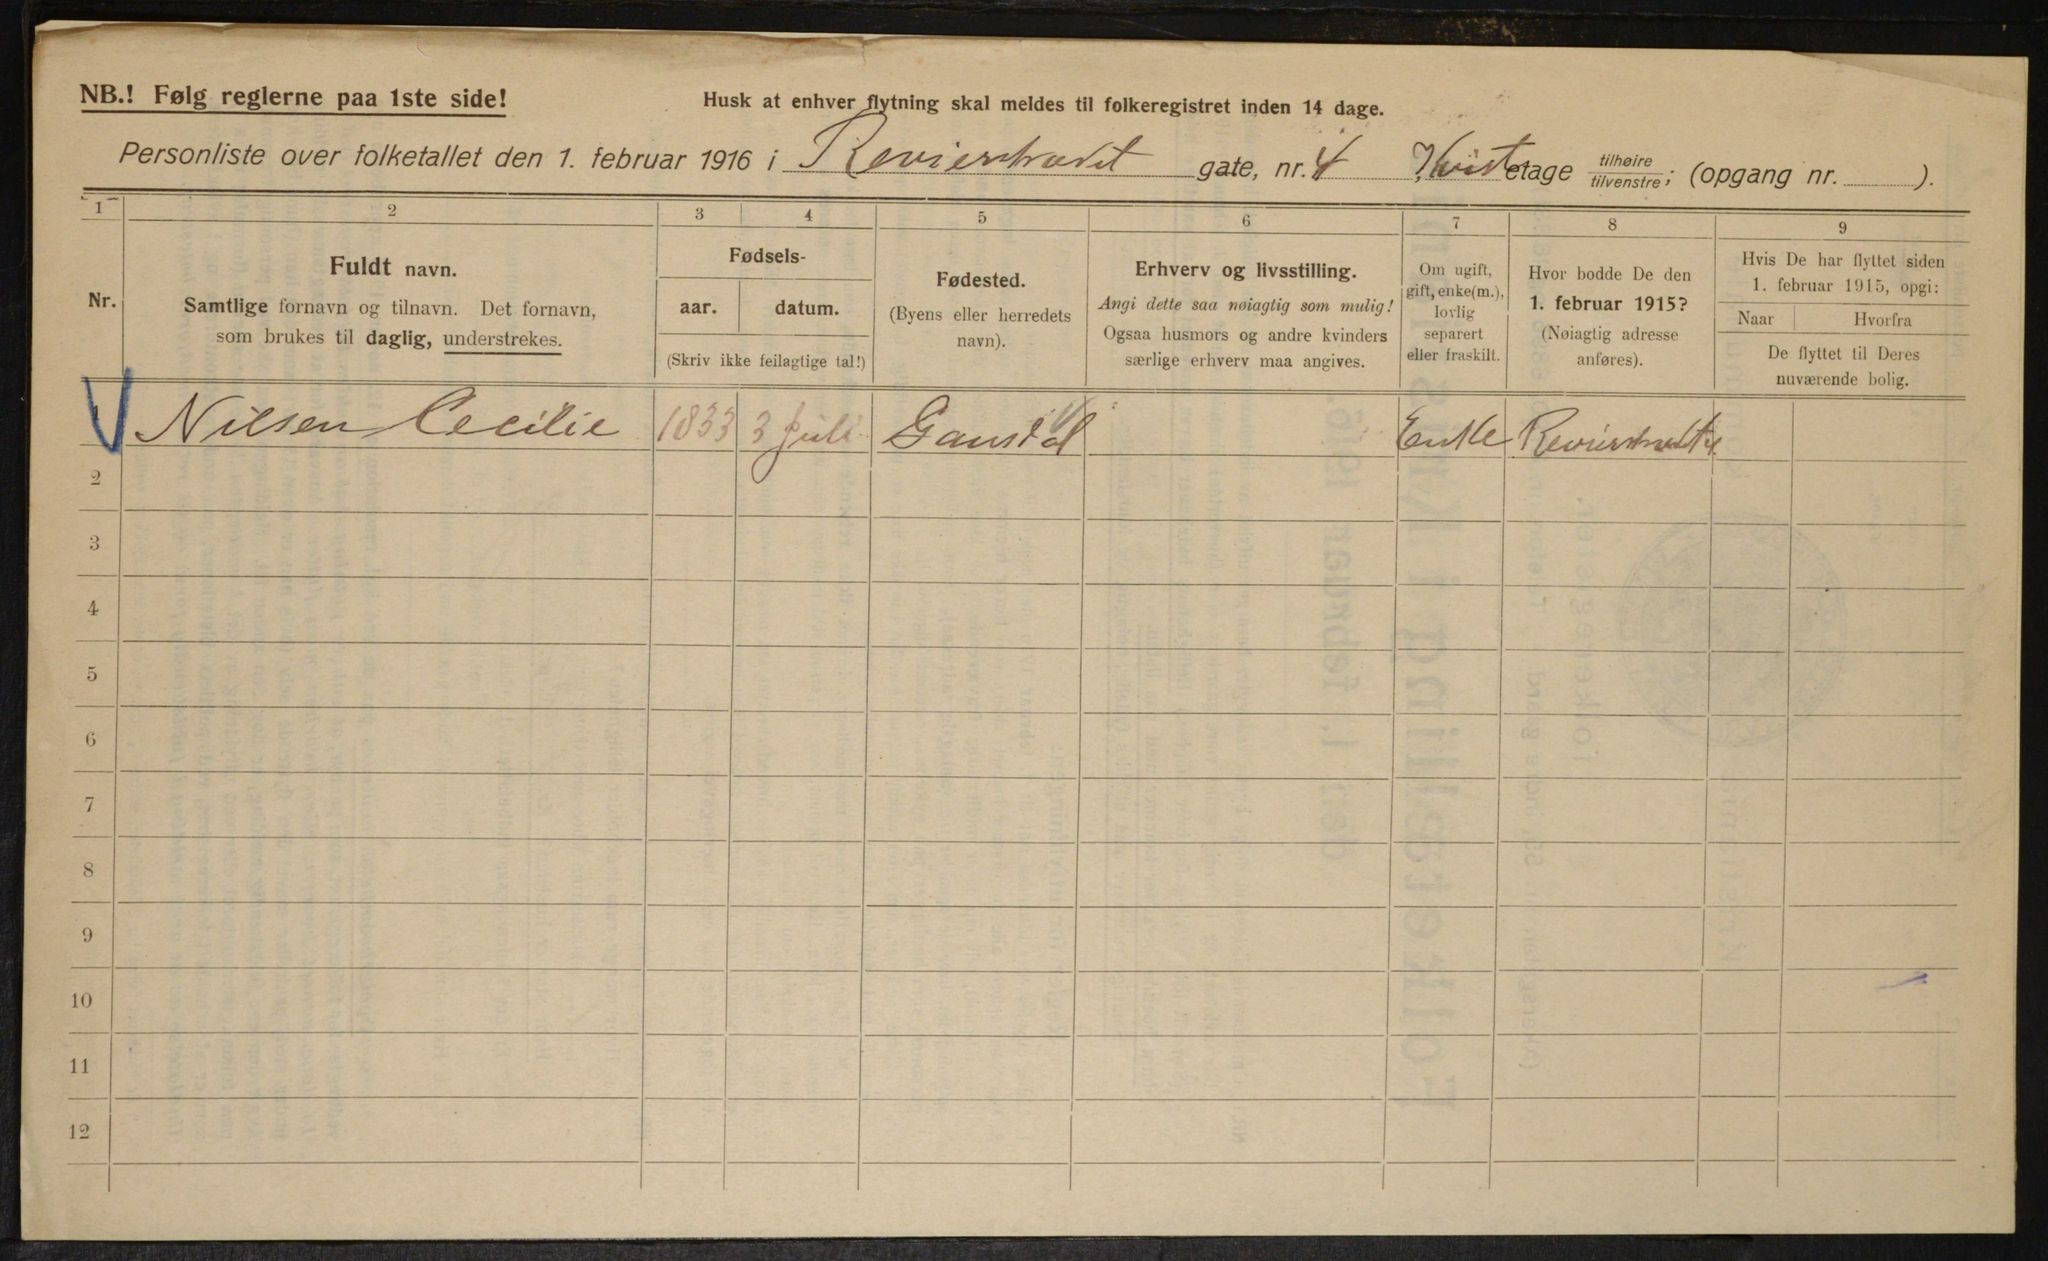 NB.! Følg reglerne paa 1ste side!
Husk at enhver flytning skal meldes til folkeregistret inden 14 dage.
Personliste over folketallet den 1. februar 1916 i Revierstrædet gate, nr. 4 Kvist etage tilhøire/tilvenstre; (opgang nr. ).
1 2 3 4 5 6 7 8 9
Nr.
Fuldt navn.
Samtlige fornavn og tilnavn. Det fornavn,
som brukes til daglig, understrekes.
Fødsels-
aar. datum.
(Skriv ikke feilagtige tal!)
Fødested.
(Byens eller herredets
navn).
Erhverv og livsstilling.
Angi dette saa nøiagtig som mulig!
Ogsaa husmors og andre kvinders
særlige erhverv maa angives.
Om ugift,
gift, enke(m.),
lovlig
separert
eller fraskilt.
Hvor bodde De den
1. februar 1915?
(Nøiagtig adresse
anføres).
Hvis De har flyttet siden
1. februar 1915, opgi:
Naar Hvorfra
De flyttet til Deres
nuværende bolig.
1 Nilsen Cecilie 1833 3 Juli Enke Revierstrædt 4
2
3
4
5
6
7
8
9
10
11
12